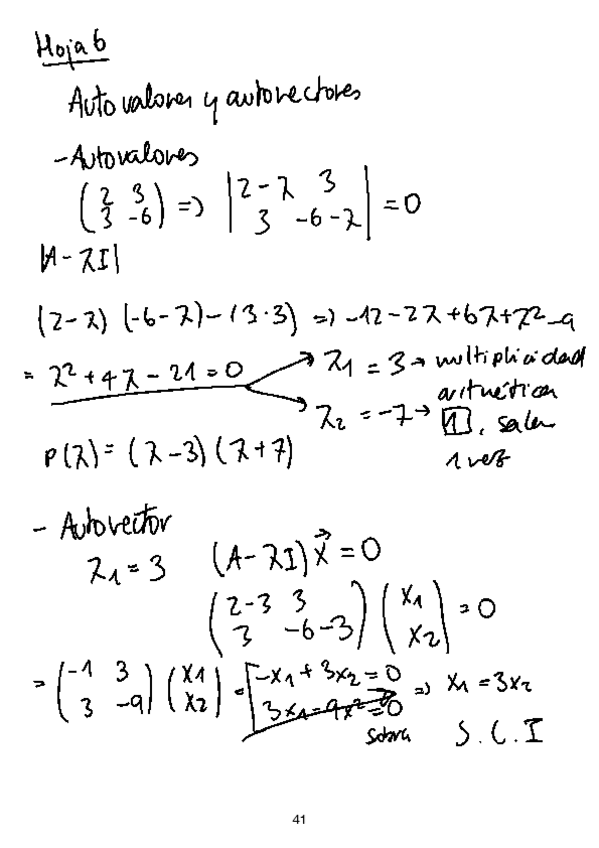 Hoja 6
Autovalores y autovectores
- Autovalores
(2 3; 3 -6) => |2-λ 3; 3 -6-λ| = 0
|A - λI|
(2-λ) (-6-λ) - (3·3) => -12-2λ+6λ+λ²-9
= λ² + 4λ - 21 = 0 λ1 = 3 → multiplicidad
aritmética
λ2 = -7 → 1, salen
1 vez
P(λ) = (λ-3)(λ+7)
- Autovector
λ1 = 3 (A-λI) x⃗ = 0
(2-3 3; 3 -6-3) (x1; x2) = 0
= (-1 3; 3 -9) (x1; x2) = [-x1 + 3x2 = 0; 3x1 - 9x² = 0 => x1 = 3x2
sobra S.C.I
41